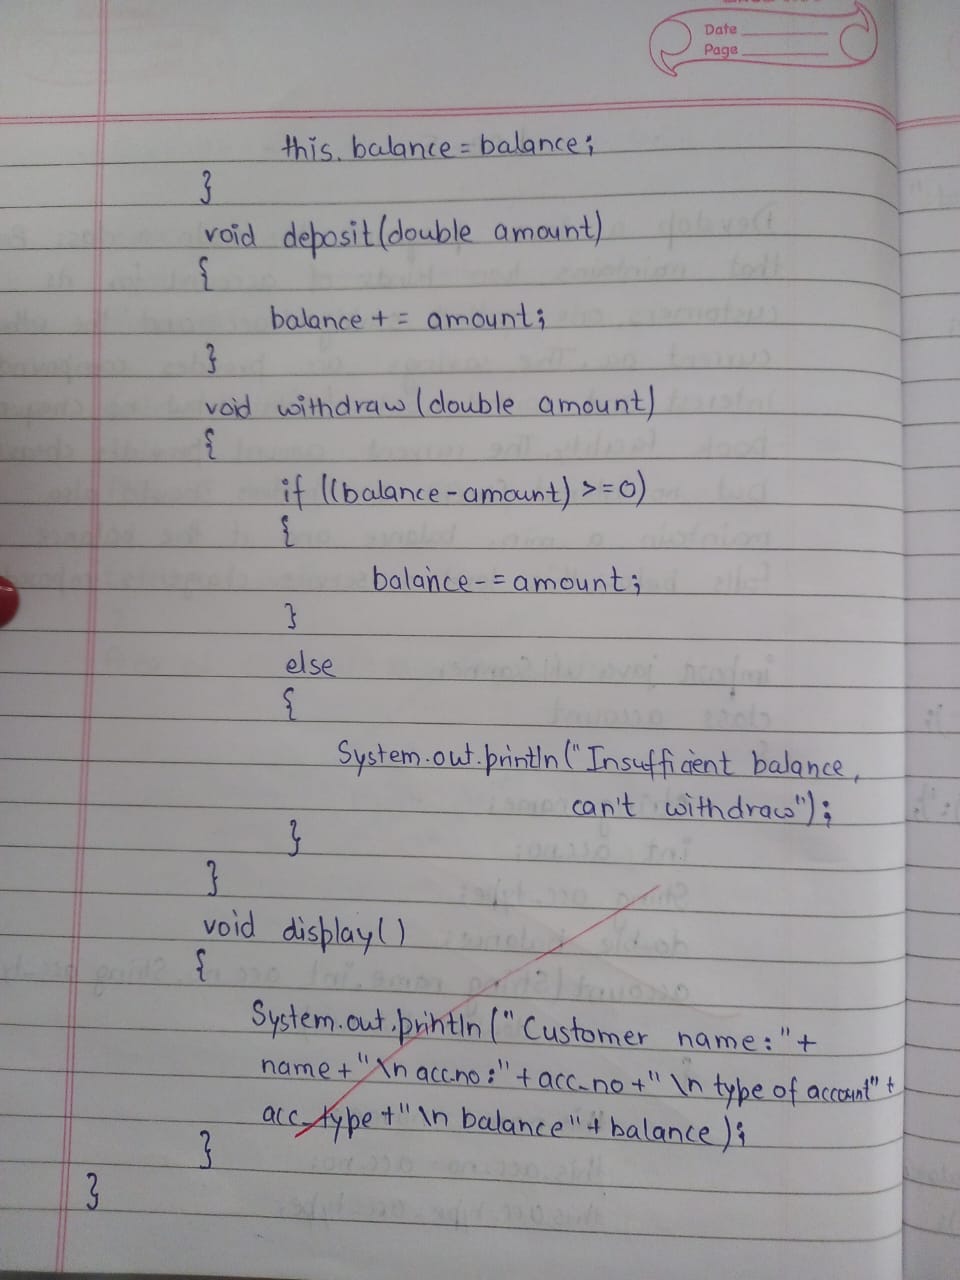 Date
Page
this.balance = balance;
}
void deposit(double amount)
{
balance += amount;
}
void withdraw(double amount)
{
if ((balance-amount) >=0)
{
balance-=amount;
}
else
{
System.out.println("Insufficient balance,
can't withdraw");
}
}
void display()
{
System.out.println("Customer name:"+
name+"\n acc.no:"+acc_no+"\n type of account"+
acc_type+"\n balance"+balance);
}
}